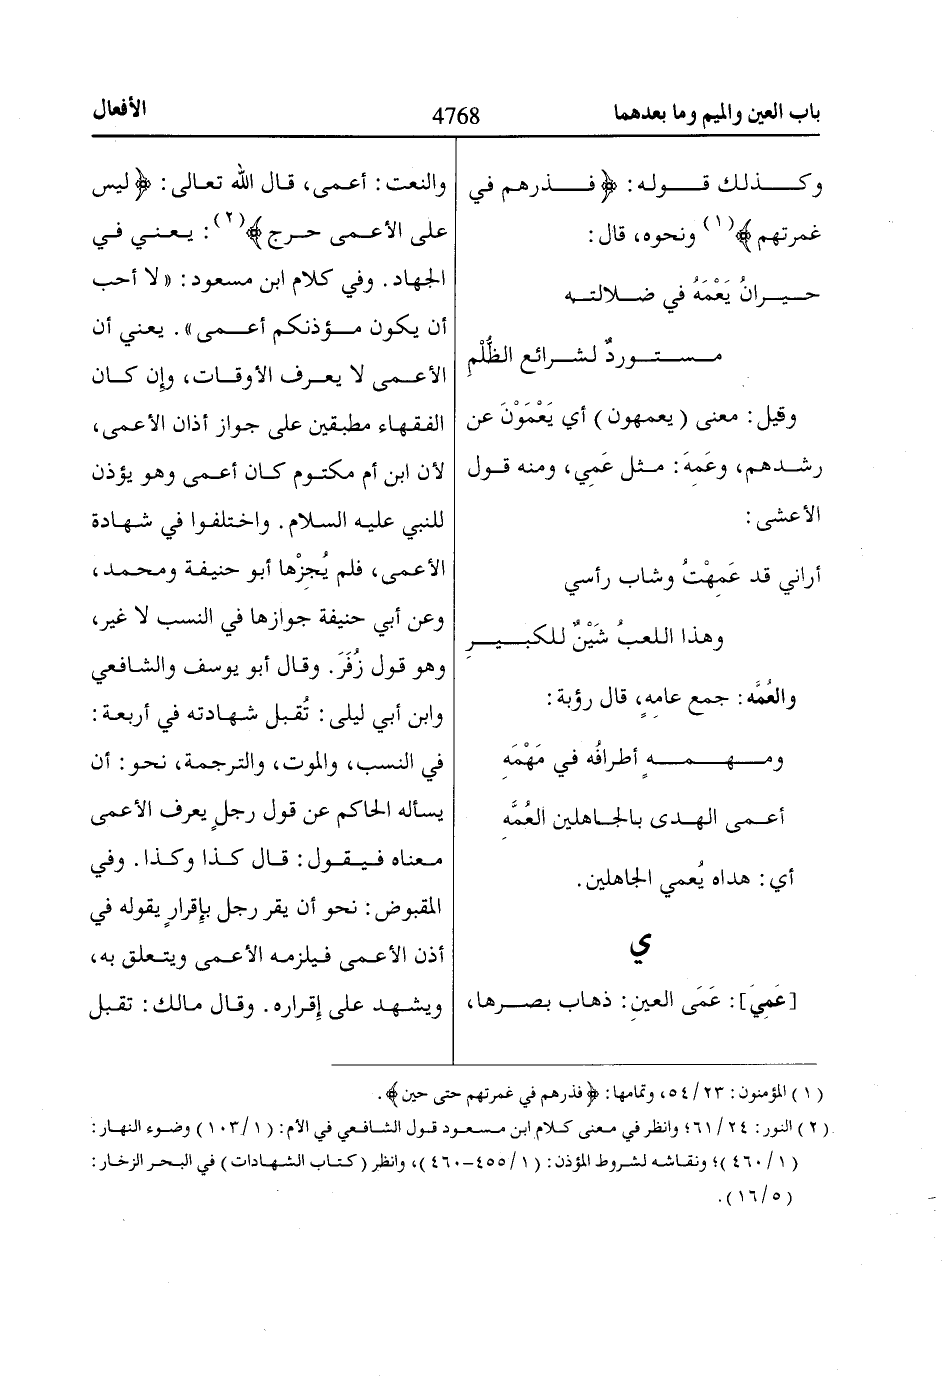 باب العين والميم وما بعدهما 4768 الأفعال
وكذلك قوله: ﴿فذرهم في
غمرتهم﴾(١) ونحوه، قال:
حيرانُ يَعْمَهُ في ضلالته
مستوردٌ لشرائع الظُّلْمِ
وقيل: معنى (يعمهون) أي يَعْمَوْنَ عن
رشدهم، وعَمِهَ: مثل عَمِي، ومنه قول
الأعشى:
أراني قد عَمِهْتُ وشاب رأسي
وهذا اللعبُ شَيْنٌ للكبيرِ
والعُمَّه: جمع عامِهٍ، قال رؤبة:
ومهمهٍ أطرافُه في مَهْمَهِ
أعمى الهدى بالجاهلين العُمَّهِ
أي: هداه يُعمي الجاهلين.
ي
[عَمِيَ]: عَمَى العينِ: ذهاب بصرها،
والنعت: أعمى، قال الله تعالى: ﴿ليس
على الأعمى حرج﴾(٢): يعني في
الجهاد. وفي كلام ابن مسعود: «لا أحب
أن يكون مؤذنكم أعمى». يعني أن
الأعمى لا يعرف الأوقات، وإن كان
الفقهاء مطبقين على جواز أذان الأعمى،
لأن ابن أم مكتوم كان أعمى وهو يؤذن
للنبي عليه السلام. واختلفوا في شهادة
الأعمى، فلم يُجِزْها أبو حنيفة ومحمد،
وعن أبي حنيفة جوازها في النسب لا غير،
وهو قول زُفَرَ. وقال أبو يوسف والشافعي
وابن أبي ليلى: تُقبل شهادته في أربعة:
في النسب، والموت، والترجمة، نحو: أن
يسأله الحاكم عن قول رجلٍ يعرف الأعمى
معناه فيقول: قال كذا وكذا. وفي
المقبوض: نحو أن يقر رجل بإقرارٍ يقوله في
أذن الأعمى فيلزمه الأعمى ويتعلق به،
ويشهد على إقراره. وقال مالك: تقبل
(١) المؤمنون: ٢٣/٥٤، وتمامها: ﴿فذرهم في غمرتهم حتى حين﴾.
(٢) النور: ٢٤/٦١؛ وانظر في معنى كلام ابن مسعود قول الشافعي في الأم: (١/١٠٣) وضوء النهار:
(١/٤٦٠)؛ ونقاشه لشروط المؤذن: (١/٤٥٥-٤٦٠)، وانظر (كتاب الشهادات) في البحر الزخار:
(٥/١٦).